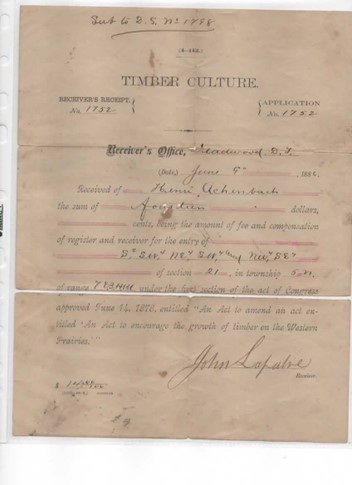 Sub to D.S. No 1758
(4-142.)
TIMBER CULTURE.
RECEIVER'S RECEIPT, No. 1752
APPLICATION No. 1752
Receiver's Office, Deadwood D.T.
(Date,) June 9th 188
Received of Henri Achenbach
the sum of fourteen dollars,
cents, being the amount of fee and compensation
of register and receiver for the entry of
of section 21 in township 5 N.
of range under the first section of the act of Congress
approved June 14, 1878, entitled "An Act to amend an act en-
titled 'An Act to encourage the growth of timber on the Western
Prairies.'"
John
Receiver.
$ 14